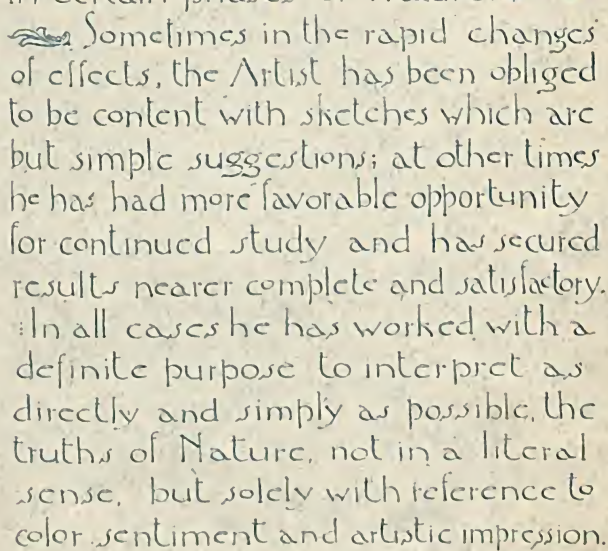 Sometimes in the rapid changes
of effects, the Artist has been obliged
to be content with sketches which are
but simple suggestions; at other times
he has had more favorable opportunity
for continued study and has secured
results nearer complete and satisfactory.
In all cases he has worked with a
definite purpose to interpret as
directly and simply as possible, the
truths of Nature, not in a literal
sense, but solely with reference to
color sentiment and artistic impression.